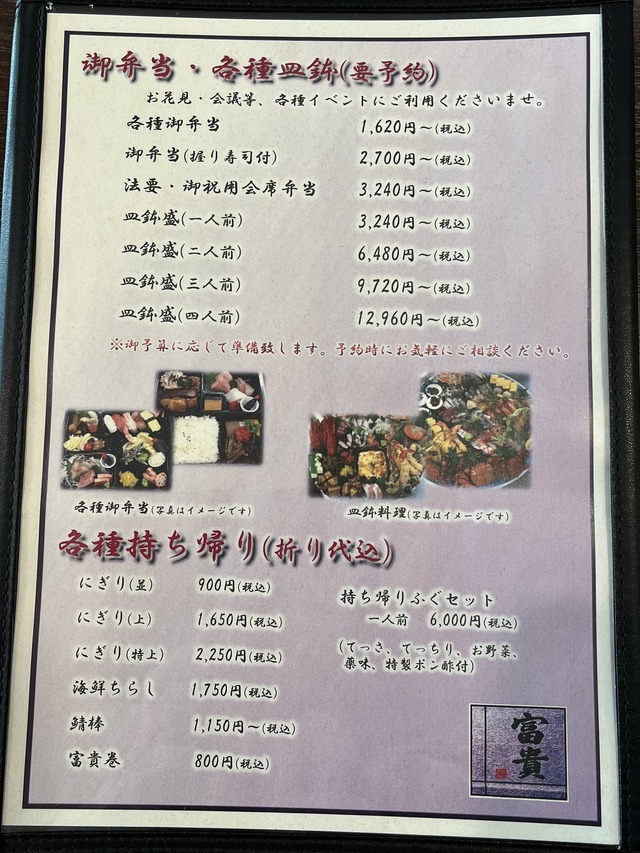 御弁当・各種皿鉢(要予約)
お花見・会議等、各種イベントにご利用くださいませ。
各種御弁当 1,620円〜(税込)
御弁当(握り寿司付) 2,700円〜(税込)
法要・御祝用会席弁当 3,240円〜(税込)
皿鉢盛(一人前) 3,240円〜(税込)
皿鉢盛(二人前) 6,480円〜(税込)
皿鉢盛(三人前) 9,720円〜(税込)
皿鉢盛(四人前) 12,960円〜(税込)
※御予算に応じて準備致します。予約時にお気軽にご相談ください。
各種御弁当(写真はイメージです)
皿鉢料理(写真はイメージです)
各種持ち帰り(折り代込)
にぎり(並) 900円(税込)
にぎり(上) 1,650円(税込)
にぎり(特上) 2,250円(税込)
海鮮ちらし 1,750円(税込)
鯖棒 1,150円〜(税込)
富貴巻 800円(税込)
持ち帰りふぐセット
一人前 6,000円(税込)
(てっさ、てっちり、お野菜、
薬味、特製ポン酢付)
富貴